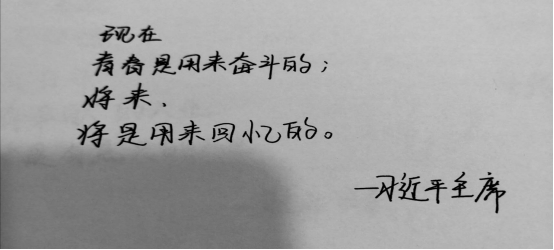 现在
青春是用来奋斗的；
将来、
将是用来回忆的。
—习近平主席